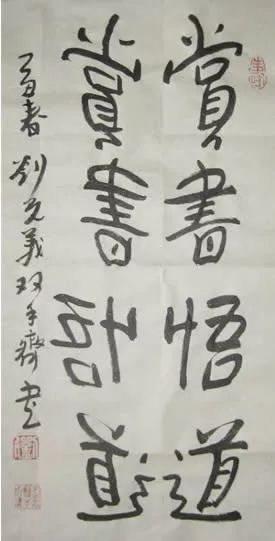 賞書悟道
賞書悟道
乙酉春刘義双手齋书